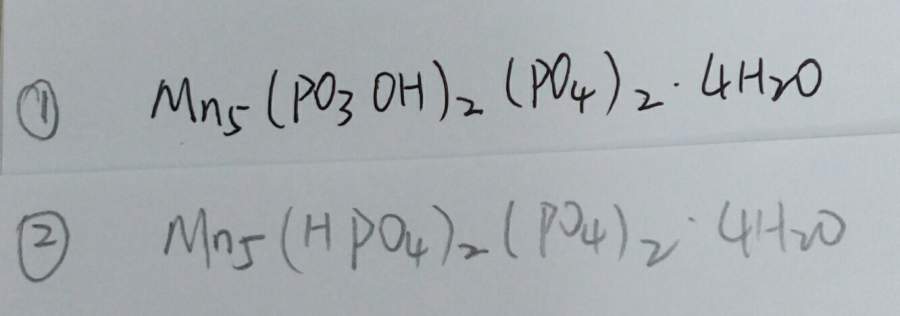 ① Mn₅(PO₃OH)₂(PO₄)₂·4H₂O
② Mn₅(HPO₄)₂(PO₄)₂·4H₂O